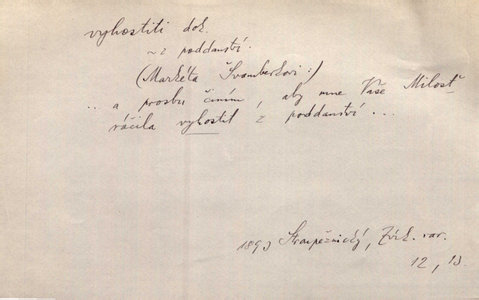 vyhostiti dok.
~ z poddanství.
(Markéta Švamberkovi:)
.. a prosbu činím, aby mne Vaše Milosť
ráčila vyhostit z poddanství ...
1893 Stroupežnický, Zvík. rar.
12, 13.